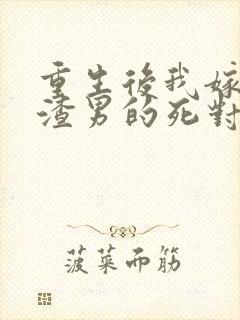 重生後我嫁
渣男的死對
菠菜而筋